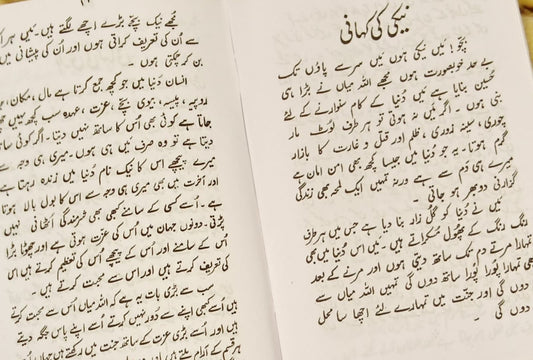 نیکی کی کہانی
بچّو! میں نیکی ہوں میں سرے پاؤں تک
بے حد خوبصورت ہوں مجھے اللہ میاں نے بڑا ہی
حسین بنایا ہے میں دُنیا کے کام سنوارنے کے لئے
بنی ہوں۔ اگر میں نہ ہوتی تو ہر طرف لوٹ مار
چوری، سینہ زوری، ظلم اور قتل و غارت کا بازار
گرم ہوتا۔ یہ جو دُنیا میں جیسا کچھ بھی امن امان ہے
میرے ہی دَم سے ہے ورنہ تمہیں ایک لمحہ بھی زندگی
گزارنی دوبھر ہو جاتی۔
میں نے دُنیا کو گُل زار بنا دیا ہے جس میں ہر طرف
رنگ رنگ کے پھول مُسکراتے ہیں۔ میں اس دُنیا میں بھی
تمہارا مرتے دم تک ساتھ دیتی ہوں اور مرنے کے بعد
بھی تمہارا پورا پورا ساتھ دوں گی تمہیں اللہ میاں سے
دوں گی اور جنّت میں تمہارے لئے اچھا سا محل
دوں گی۔
مجھے نیک بچّے بڑے اچھے لگتے ہیں۔ میں ہر
سے اُن کی تعریف کراتی ہوں اور اُن کی پیشانی میں
بن کر چمکتی ہوں۔
انسان دُنیا میں جو کچھ جمع کرتا ہے مال، مکان،
روپیہ، پیسہ، بیوی بچّے، عزت، عہدہ سب کچھ یہیں
جاتا ہے کوئی بھی اُس کا ساتھ نہیں دیتا۔ اگر کوئی ساتھ
دیتا ہے تو وہ صرف میں ہی ہوں۔ میری ہی وجہ سے
میرے پیچھے اس کا نیک نام دُنیا میں زندہ رہتا ہے
اور آخرت میں بھی میری ہی وجہ سے اس کا بول بالا ہوتا
ہے۔ اُسے کسی کے سامنے کبھی بھی شرمندگی اُٹھانی نہیں
پڑتی۔ دونوں جہان میں اُس کی عزت ہوتی ہے اور چھوٹا بڑا
اُس کے سامنے اور اُس کے پیچھے اُس کی تعظیم کرتے ہیں
کی تعریف کرتے ہیں اور اس سے محبت کرتے ہیں۔
سب سے بڑی بات یہ ہے کہ اللہ میاں اُس سے محبت کرتے
ہیں اُسے کبھی اپنے سے دُور نہیں کرتے اُسے اپنے پاس جگہ دیتے
ہیں اور اُسے بڑی عزت کے ساتھ جنت میں رکھتے ہیں جہاں اُسے
ہر قسم کے آرام ملتے ہیں